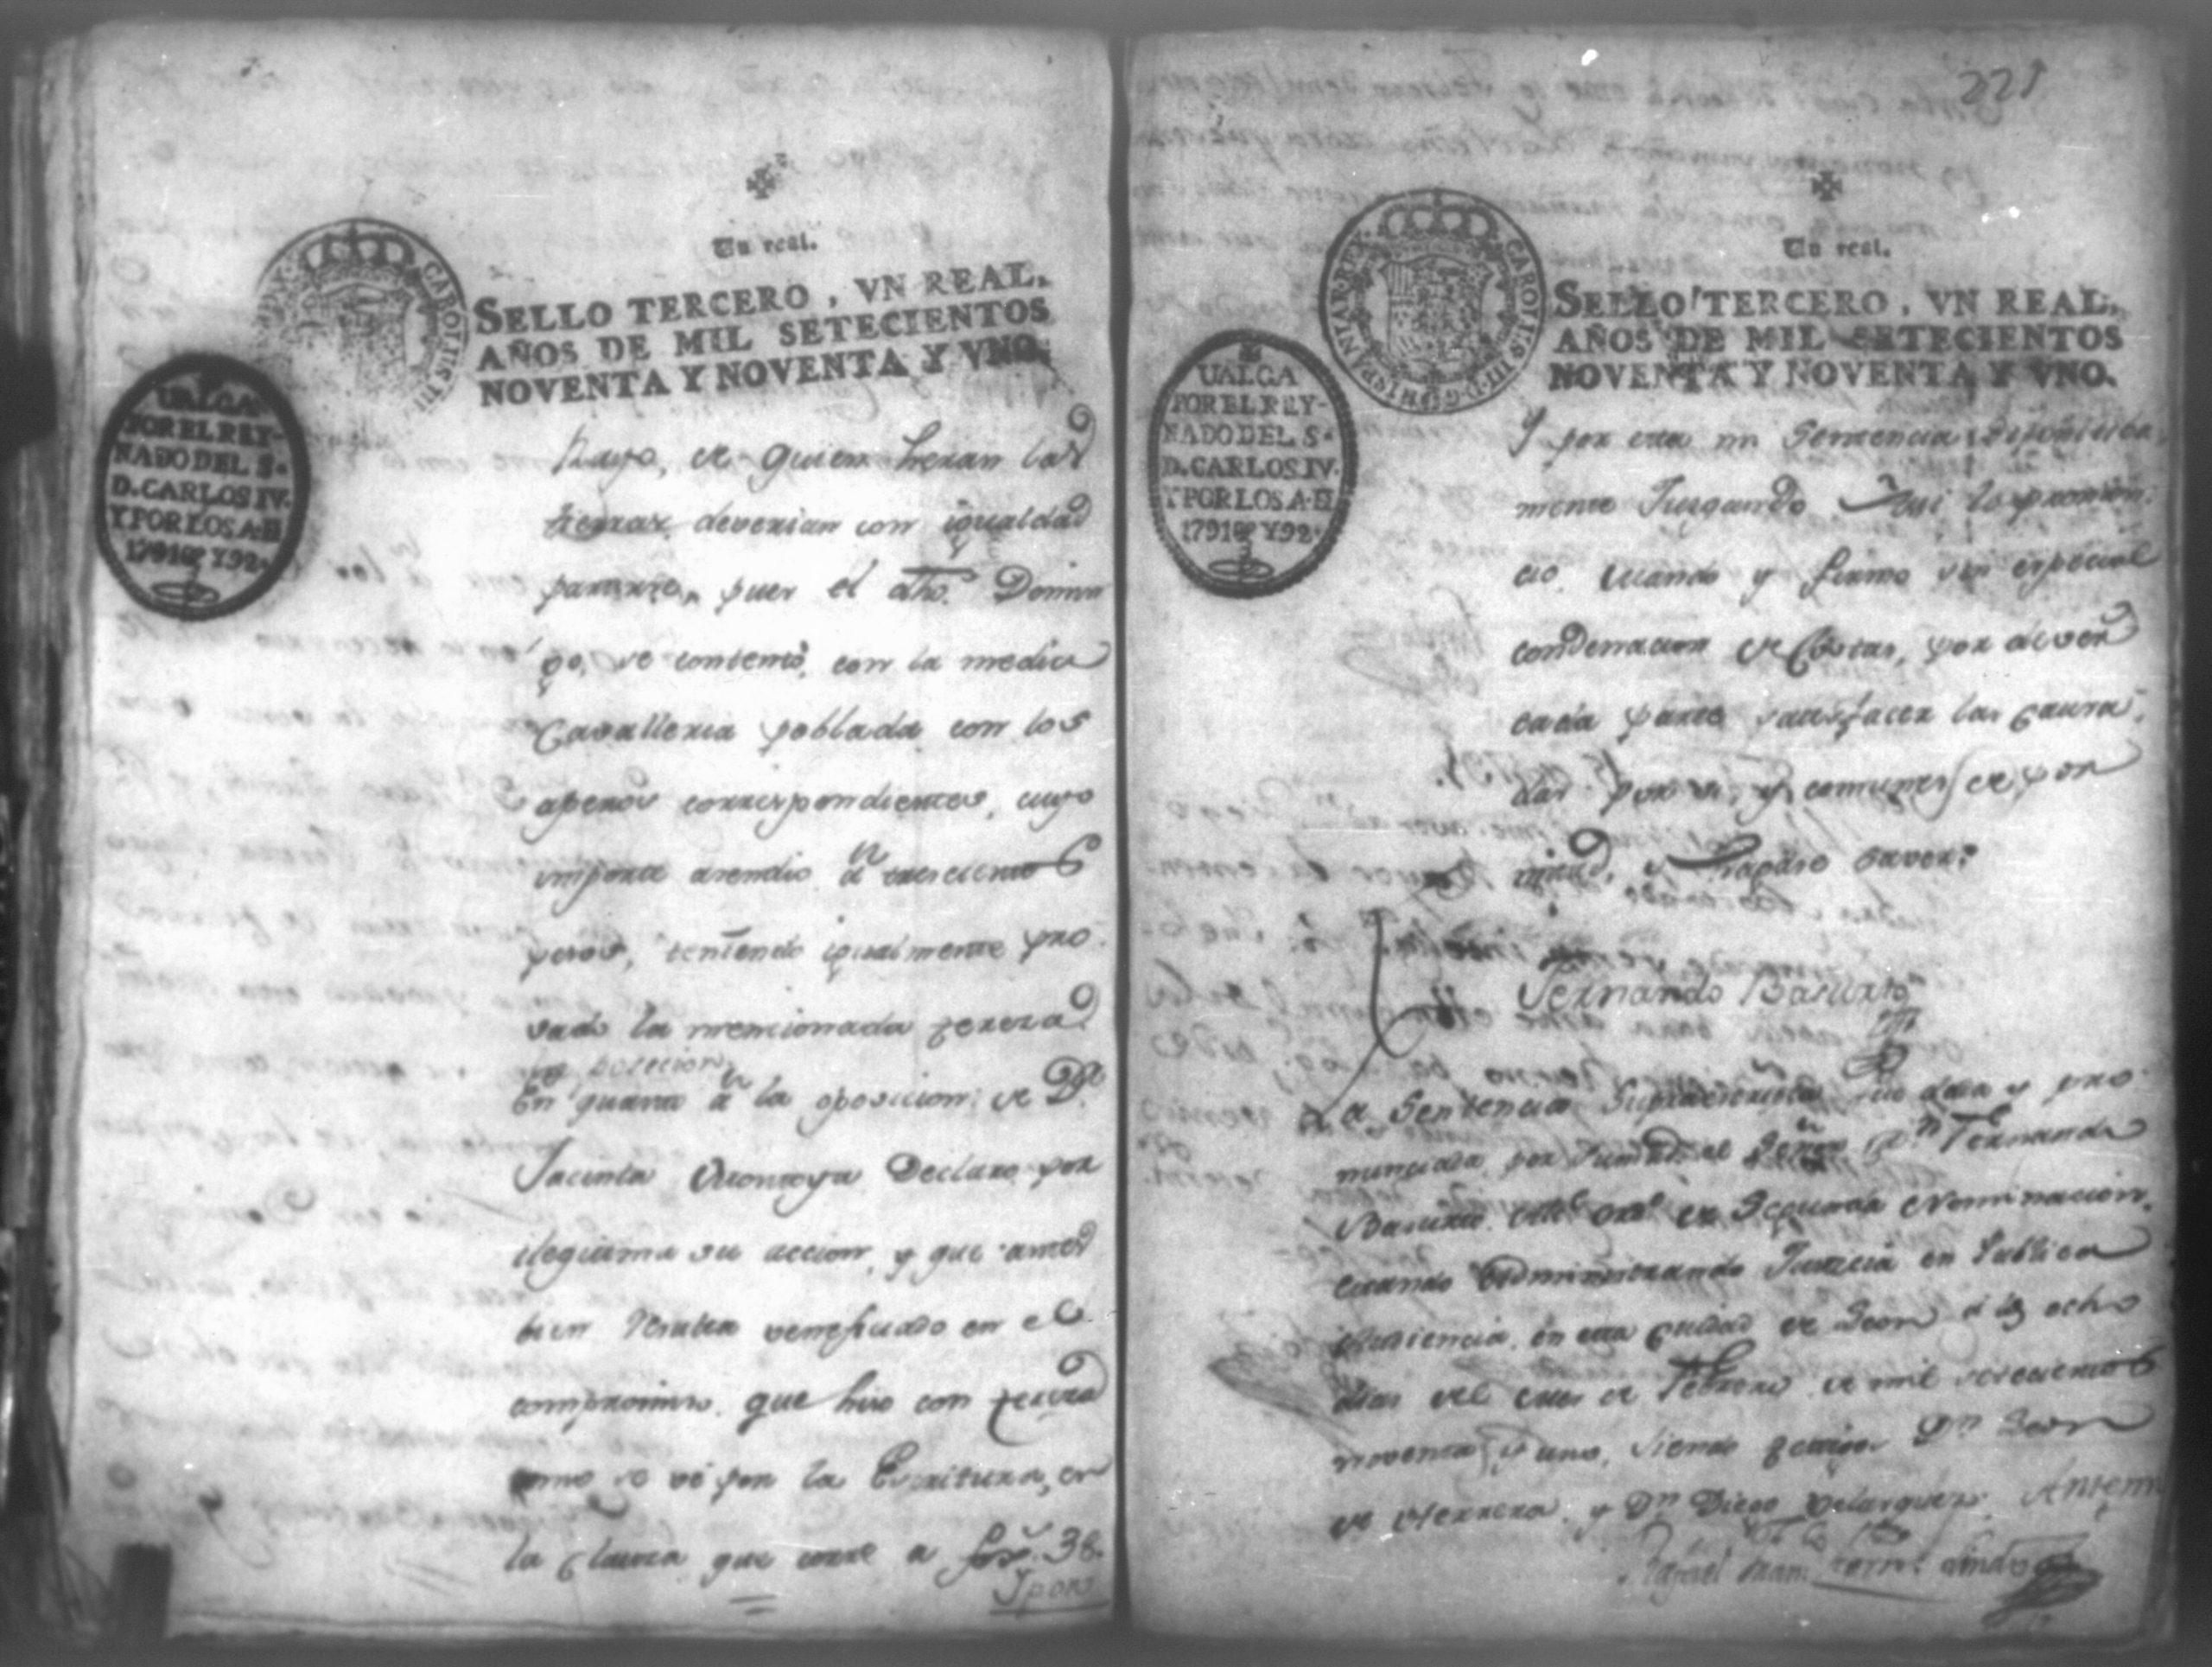 Un real.
SELLO TERCERO, VN REAL,
AÑOS DE MIL SETECIENTOS
NOVENTA Y NOVENTA Y VNO.
CAROLUS III
UALGA
POR EL REY-
NADO DEL S.
D. CARLOS IV.
Y POR LOS A. D
1791 Y 92.
Rayo, de quien heran las
tierras deverian con igualdad
partirse, puer el dho. Domin
go, se contentó, con la media
Cavalleria poblada con los
aperos correspondientes, cuyo
importe asendio â trescientos
pesos, teniendo igualmente pro
vado la mencionada tercera
En quanto â la oposicion de Da.
Jacinta Montoya Declaro por
ilegitima su accion, y que antes
bien resulta veneficiado en el
compromiso que hiso con
como se vé por la Escritura, en
la Clausa que corre a foxs. 38.
Y por
221
Un real.
SELLO TERCERO, VN REAL,
AÑOS DE MIL SETECIENTOS
NOVENTA Y NOVENTA Y VNO.
CAROLUS III D.G. HISPANIAR REX
UALGA
POR EL REY-
NADO DEL S.
D. CARLOS IV.
Y POR LOS A. D
1791 Y 92.
Y por esta mi Sentencia Difinitiva
mente Jusgando Asi lo pronun
cio, mando y firmo sin especial
condenacion de Costas, por dever
cada parte satisfacer las causa
das por si, y comunes de por
mitad, y
Fernando Basurto
La Sentencia Suprascrita fue dada y pro
nunciada, por su mrd. el Señor Dn. Fernando
Basurto, Alce. Ordo. de Segunda Nominacion,
estando Administrando Justicia en Publica
Audiencia, en esta Ciudad de Leon a los ocho
dias del mes de Febrero de mil setecientos
noventa y uno, siendo testigos Dn. Leon
de Herrera, y Dn. Diego Velasquez. Antemi
Rafael